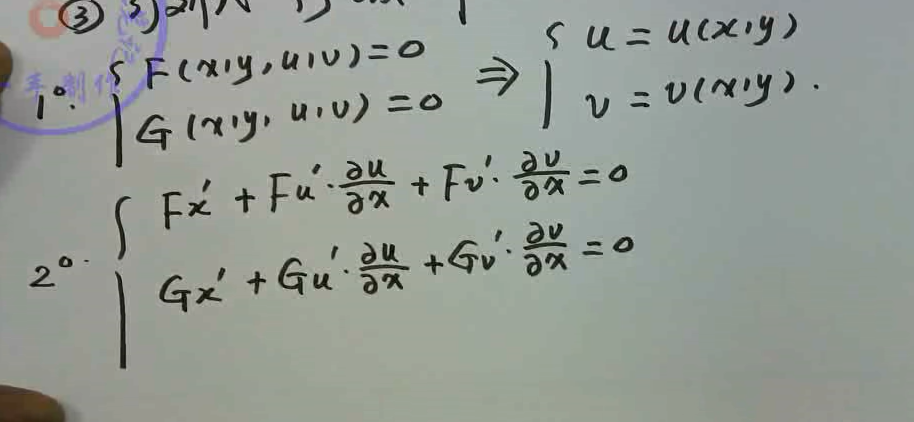 ③
1°. { F(x,y,u,v)=0 ⇒ { u = u(x,y)
G(x,y,u,v)=0 v = v(x,y).
2°. { Fx′ + Fu′·∂u/∂x + Fv′·∂v/∂x = 0
Gx′ + Gu′·∂u/∂x + Gv′·∂v/∂x = 0